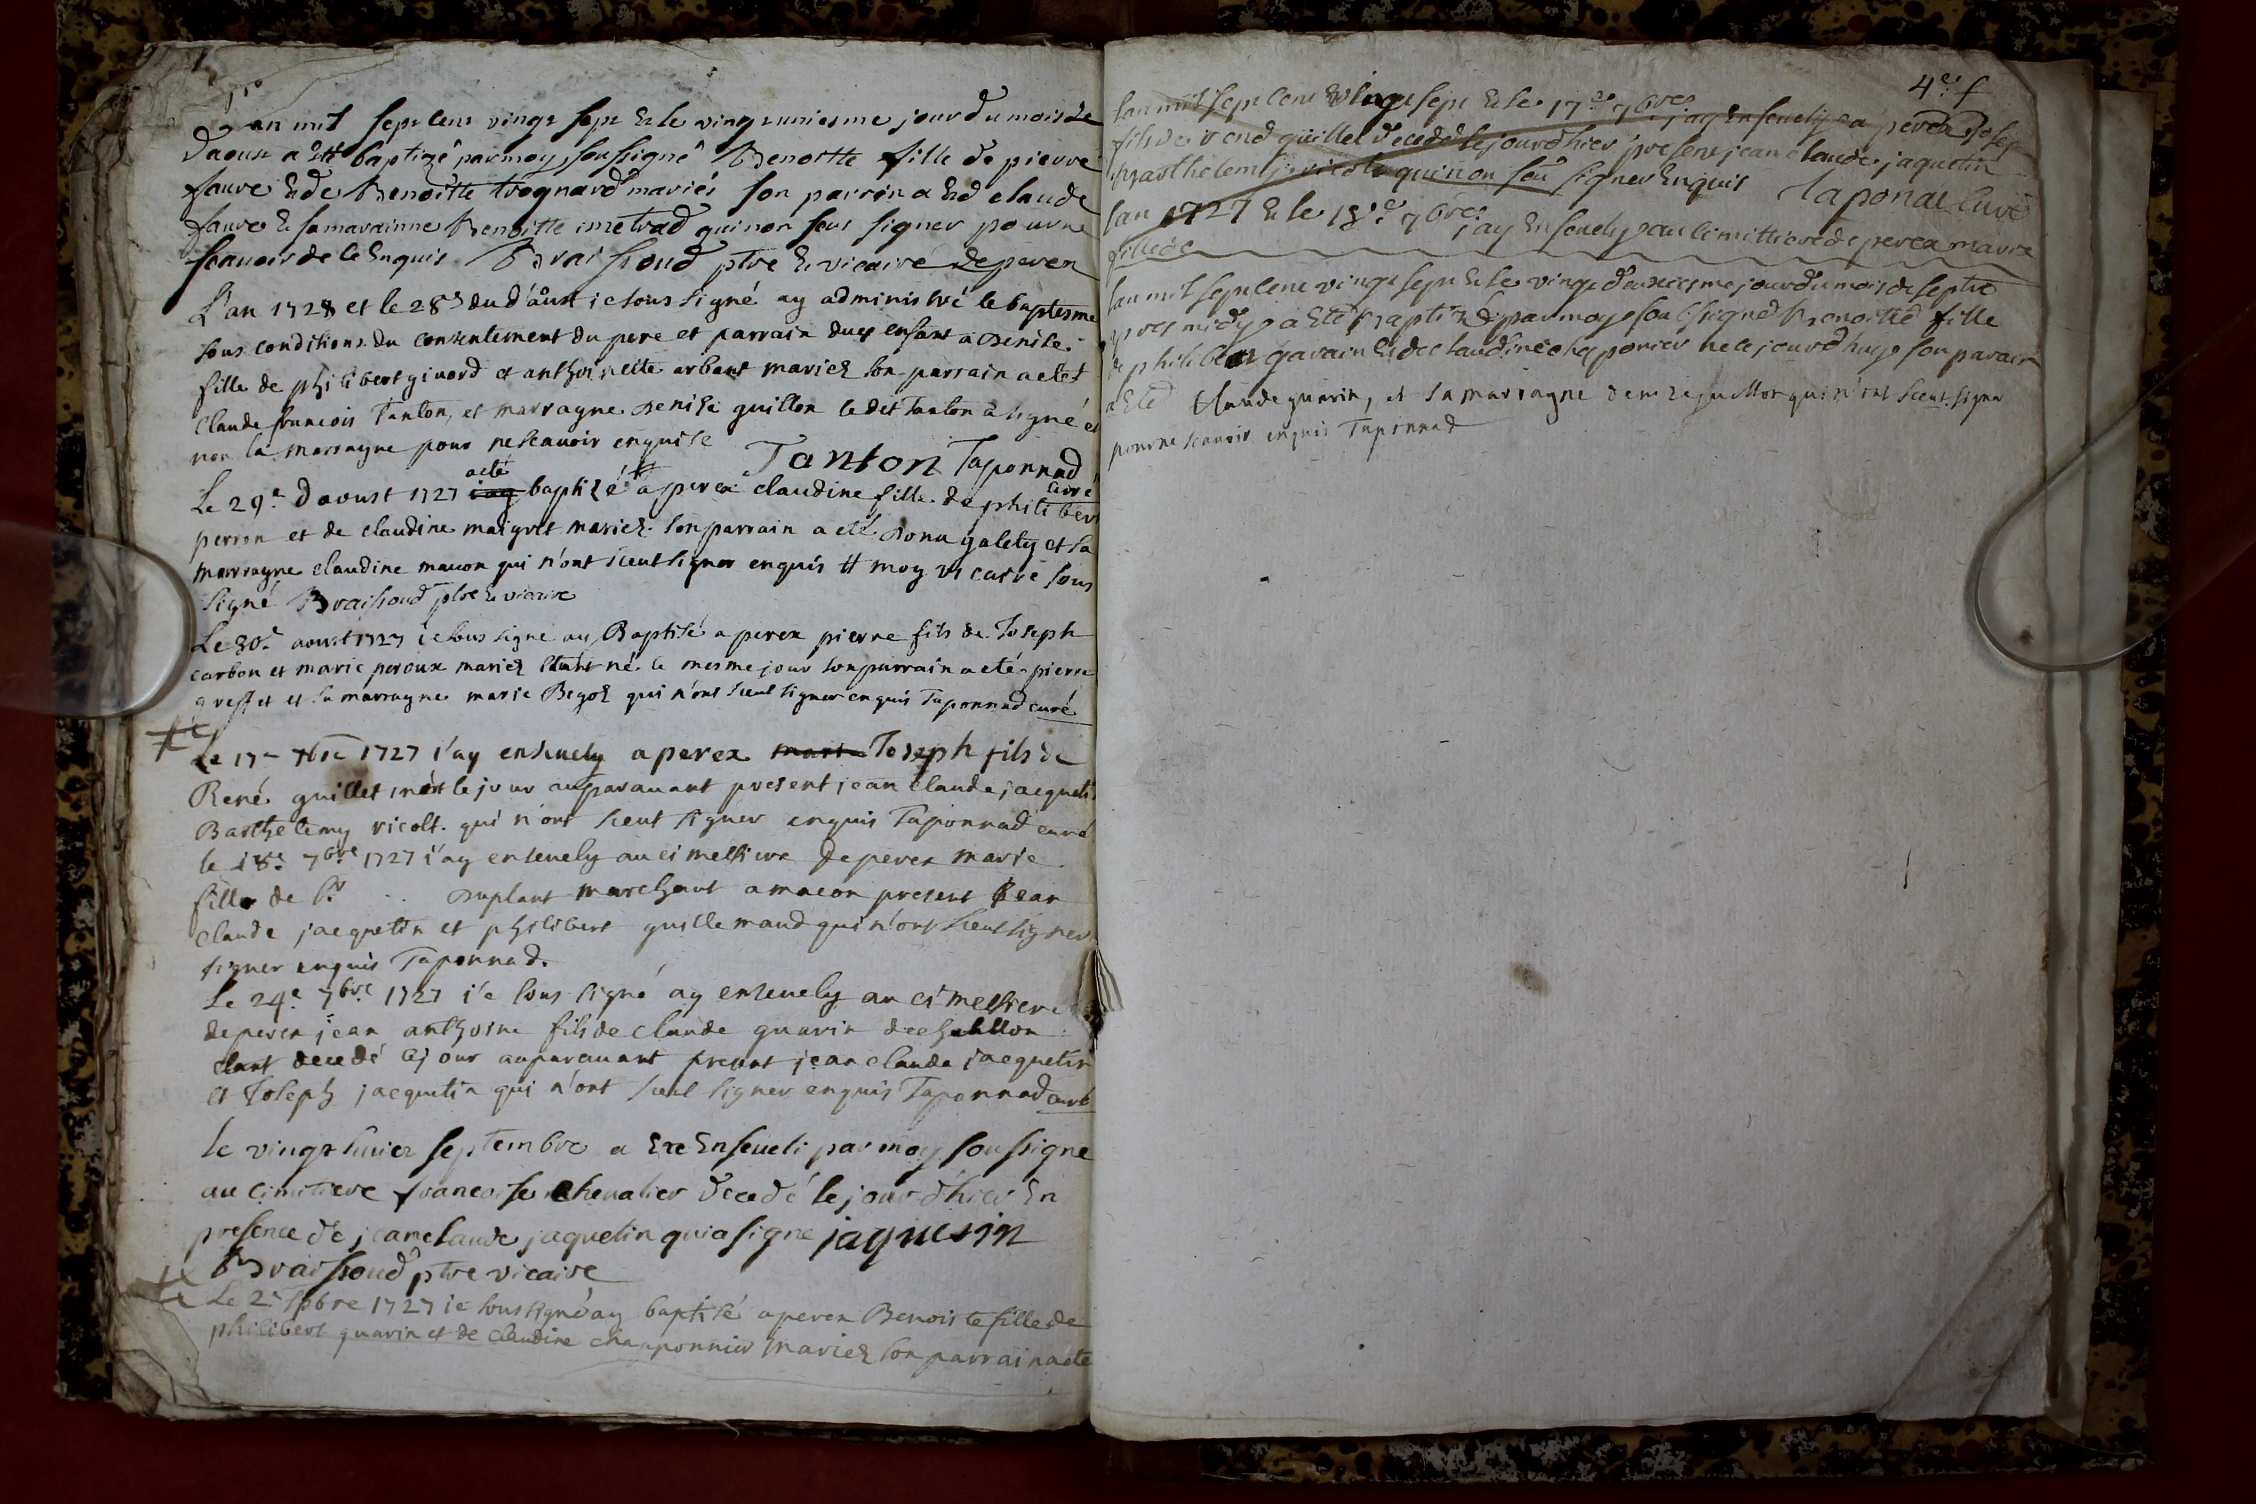 L'an mil sept cent vingt sept & le vingt uniesme jour du mois de
Daoust a esté baptizé par moy soussigné Benoitte fille de pierre
faure & de Benoitte trognard mariés son parrin a esté claude
faure & sa marainne Benoitte metrad qui non seut signer pour ne
scauoir de ce Enquis Braissoud ptre & vicaire de perex
L'an 1728 et le 28e du d'aoust ie sous signé ay administré le baptesme
sous conditions du consentement du pere et parrain dues enfant a denise
fille de philibert givord et anthoinette arbant mariez son parrain a eté
Claude francois Tanton, et marrayne denise guillon le dit Tanton a signé et
non la marrayne pour ne scauoir enquise Tanton Taponnad
curé
Le 29e. Daoust 1727 acté iay baptizé a perex claudine fille de philibert
perron et de claudine maigret mariez son parrain a eté dona galety et sa
marrayne claudine macon qui n'ont sceut signer enquis # moy vicaire sous
signé Braissoud ptre & vicaire
Le 30e aoust 1727 ie sous signé ay Baptisé a perex pierre fils de Joseph
carbon et marie peroux mariez étant né le mesme jour son parrain a eté pierre
greffet et sa marrayne marie Begoz qui n'ont sceut signer enquis Taponnad curé
Le 17e 7bre 1727 i'ay enseuely a perex marie Joseph fils de
René guillet mort le jour auparauant present jean claude jacquetin
Barthelemy ricolt. qui n'ont sceut signer enquis Taponnad curé
le 18e. 7bre 1727 i'ay enseuely au cimettiere de perex marie
fille de Sr .. duplant marchant a macon present Jean
Claude jacquetin et philibert guillemaud qui n'ont sceut signer
signer enquis Taponnad.
Le 24e 7bre 1727 i'e sous signé ay enseuely au cimettiere
de perex jean anthoine fils de claude guarin de chatillon
etant decedé le jour auparauant present jean claude jacquetin
et Joseph jacquetin qui n'ont sceut signer enquis Taponnad curé
le vingt huiet septembre a Ete Enseueli par moy soussigne
au cimitiere francoise cheualier decedé le jour d'hier En
presence de jeanclaude jaquetin qui a signe jaquetin
Braissoud ptre vicaire
Le 2e 7pbre 1727 ie soussigné ay baptisé a perex Benoiste fille de
philibert guarin et de Claudine chapponnier mariez son parrain a eté
4e. f
lan mil sept cent vingt sept & le 17e 7bres jay Enseuely a perex Josep
fils de rend guillet decedé le jourdhier present jean claude jaquetin
Barthelemi ricolt qui non seu signer Enquis Taponat Curé
lan 1727 & le 18e 7bres jay Enseuely au cimittiere de perex marie
fille de
lan mil sept cent vingt sept & le vingt deuxiesme jour du mois de septre
apres midy a Eté Baptizé par moy soussigné Benoitte fille
de philibert gavain & de claudine chaponier née le jourdhuy son parain
a Eté Claude guarin, et sa marrayne denize juillot qui n'ont sceut signer
pour ne scauoir enquis Taponnad